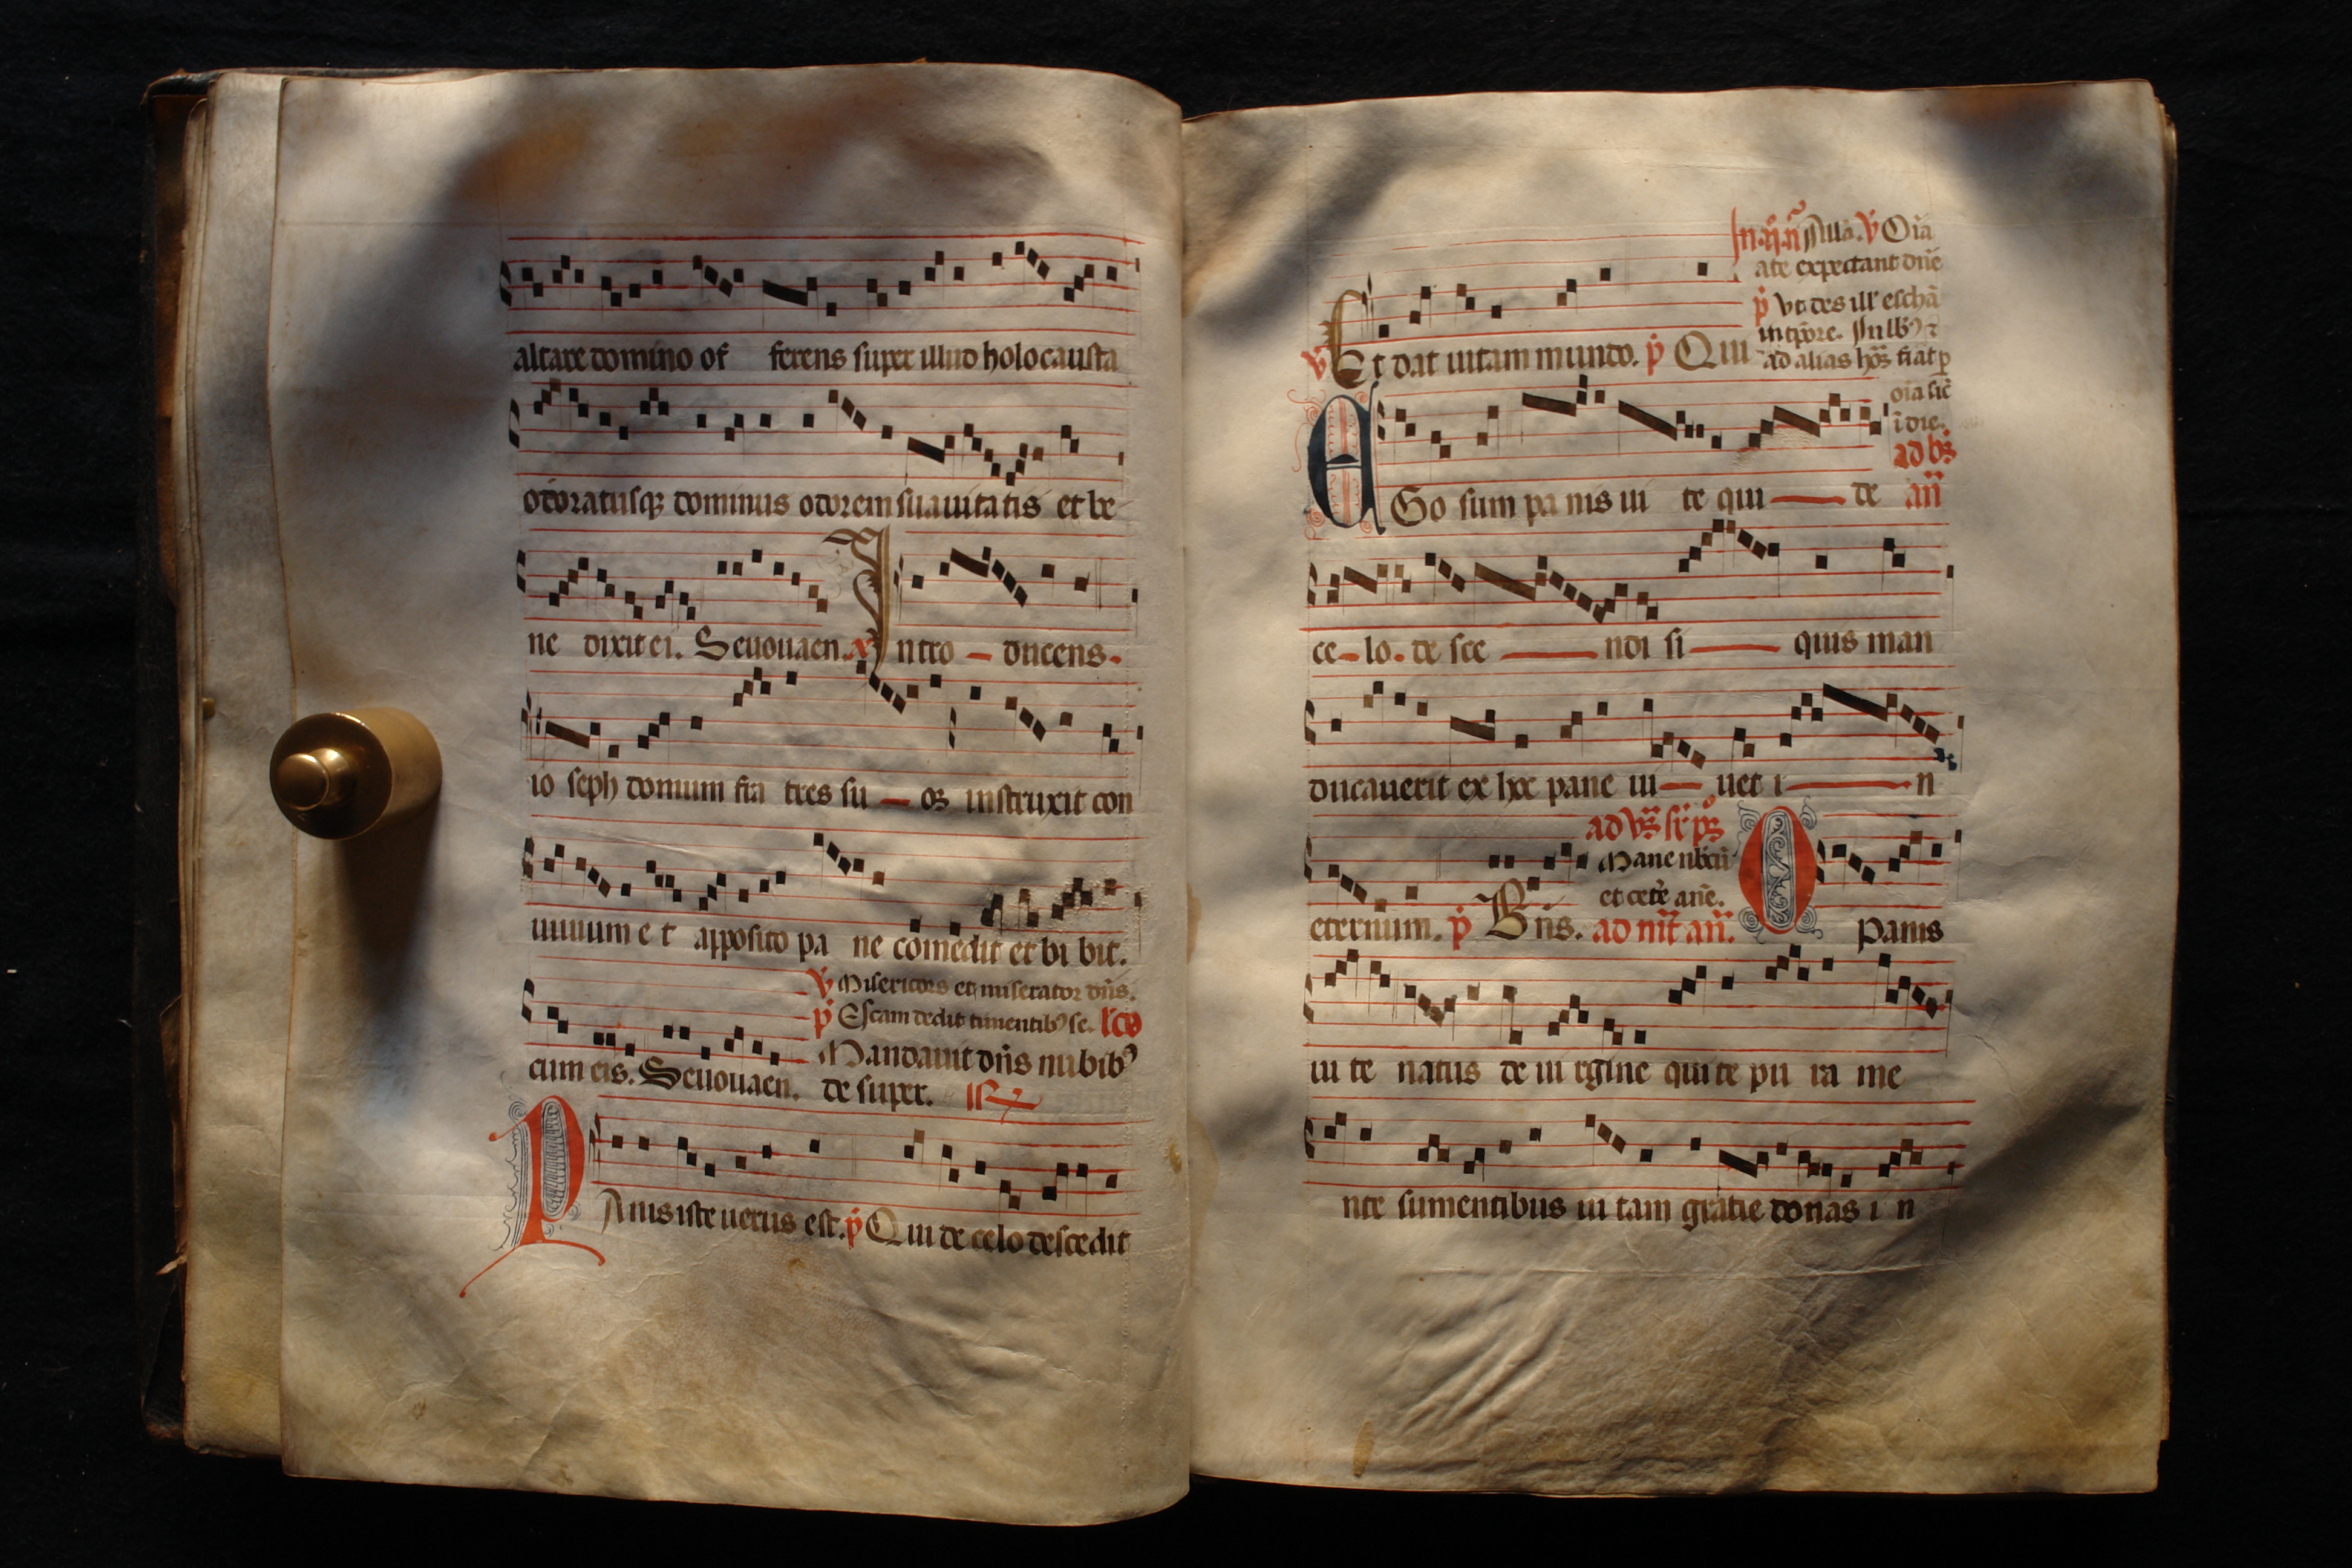 altare domino of ferens super illud holocausta
odoratusq; dominus odorem suauitatis et be
ne dixit ei. Seuouaen. Intro ducens
io seph domum fra tres su os instruxit con
uiuium e t apposito pa ne comedit et bi bit.
℣ Misericors et miserator dñs.
p̃ Escam dedit timentibꝰ se.
cum eis. Seuouaen. Mandauit dñs nubibꝰ
de super.
PAnis iste uerus est. p̃ Qui de celo descedit
Oĩa
ate expectant dñe
p̃
in tp̃ore.
℣ Et dat uitam mundo. p̃ Qui ad alias
oĩa sic̃
ĩ die.
EGo sum pa nis ui te qui de añ
ce lo de sce ndi si quis man
ducauerit ex hoc pane ui uet i n
Mane nbcũ
et cete añe.
eternum. p̃ Bñs. O panis
ui te natus de ui rgine qui te pu ra me
nte sumentibus ui tam gratie donas i n